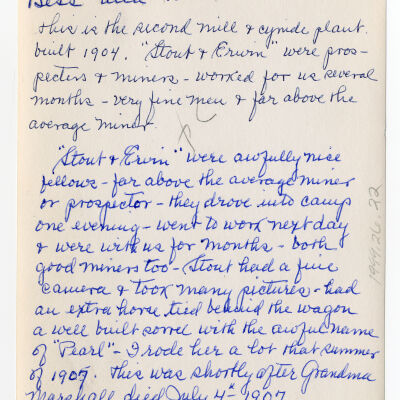 Bess
This is the second mill & cynide plant
built 1904. "Stout & Erwin" were pros-
pecters & miners - worked for us several
months - very fine men & far above the
average miner.
"Stout & Erwin" were awfully nice
fellows - far above the average miner
or prospector - they drove into camp
one evening - went to work next day
& were with us for months - both
good miners too - Stout had a fine
camera & took many pictures - had
an extra horse tied behind the wagon
a well built sorrel with the awful name
of "Pearl" - I rode her a lot that summer
of 1907. This was shortly after Grandma
Marshall died July 4th 1907
1999.26.22